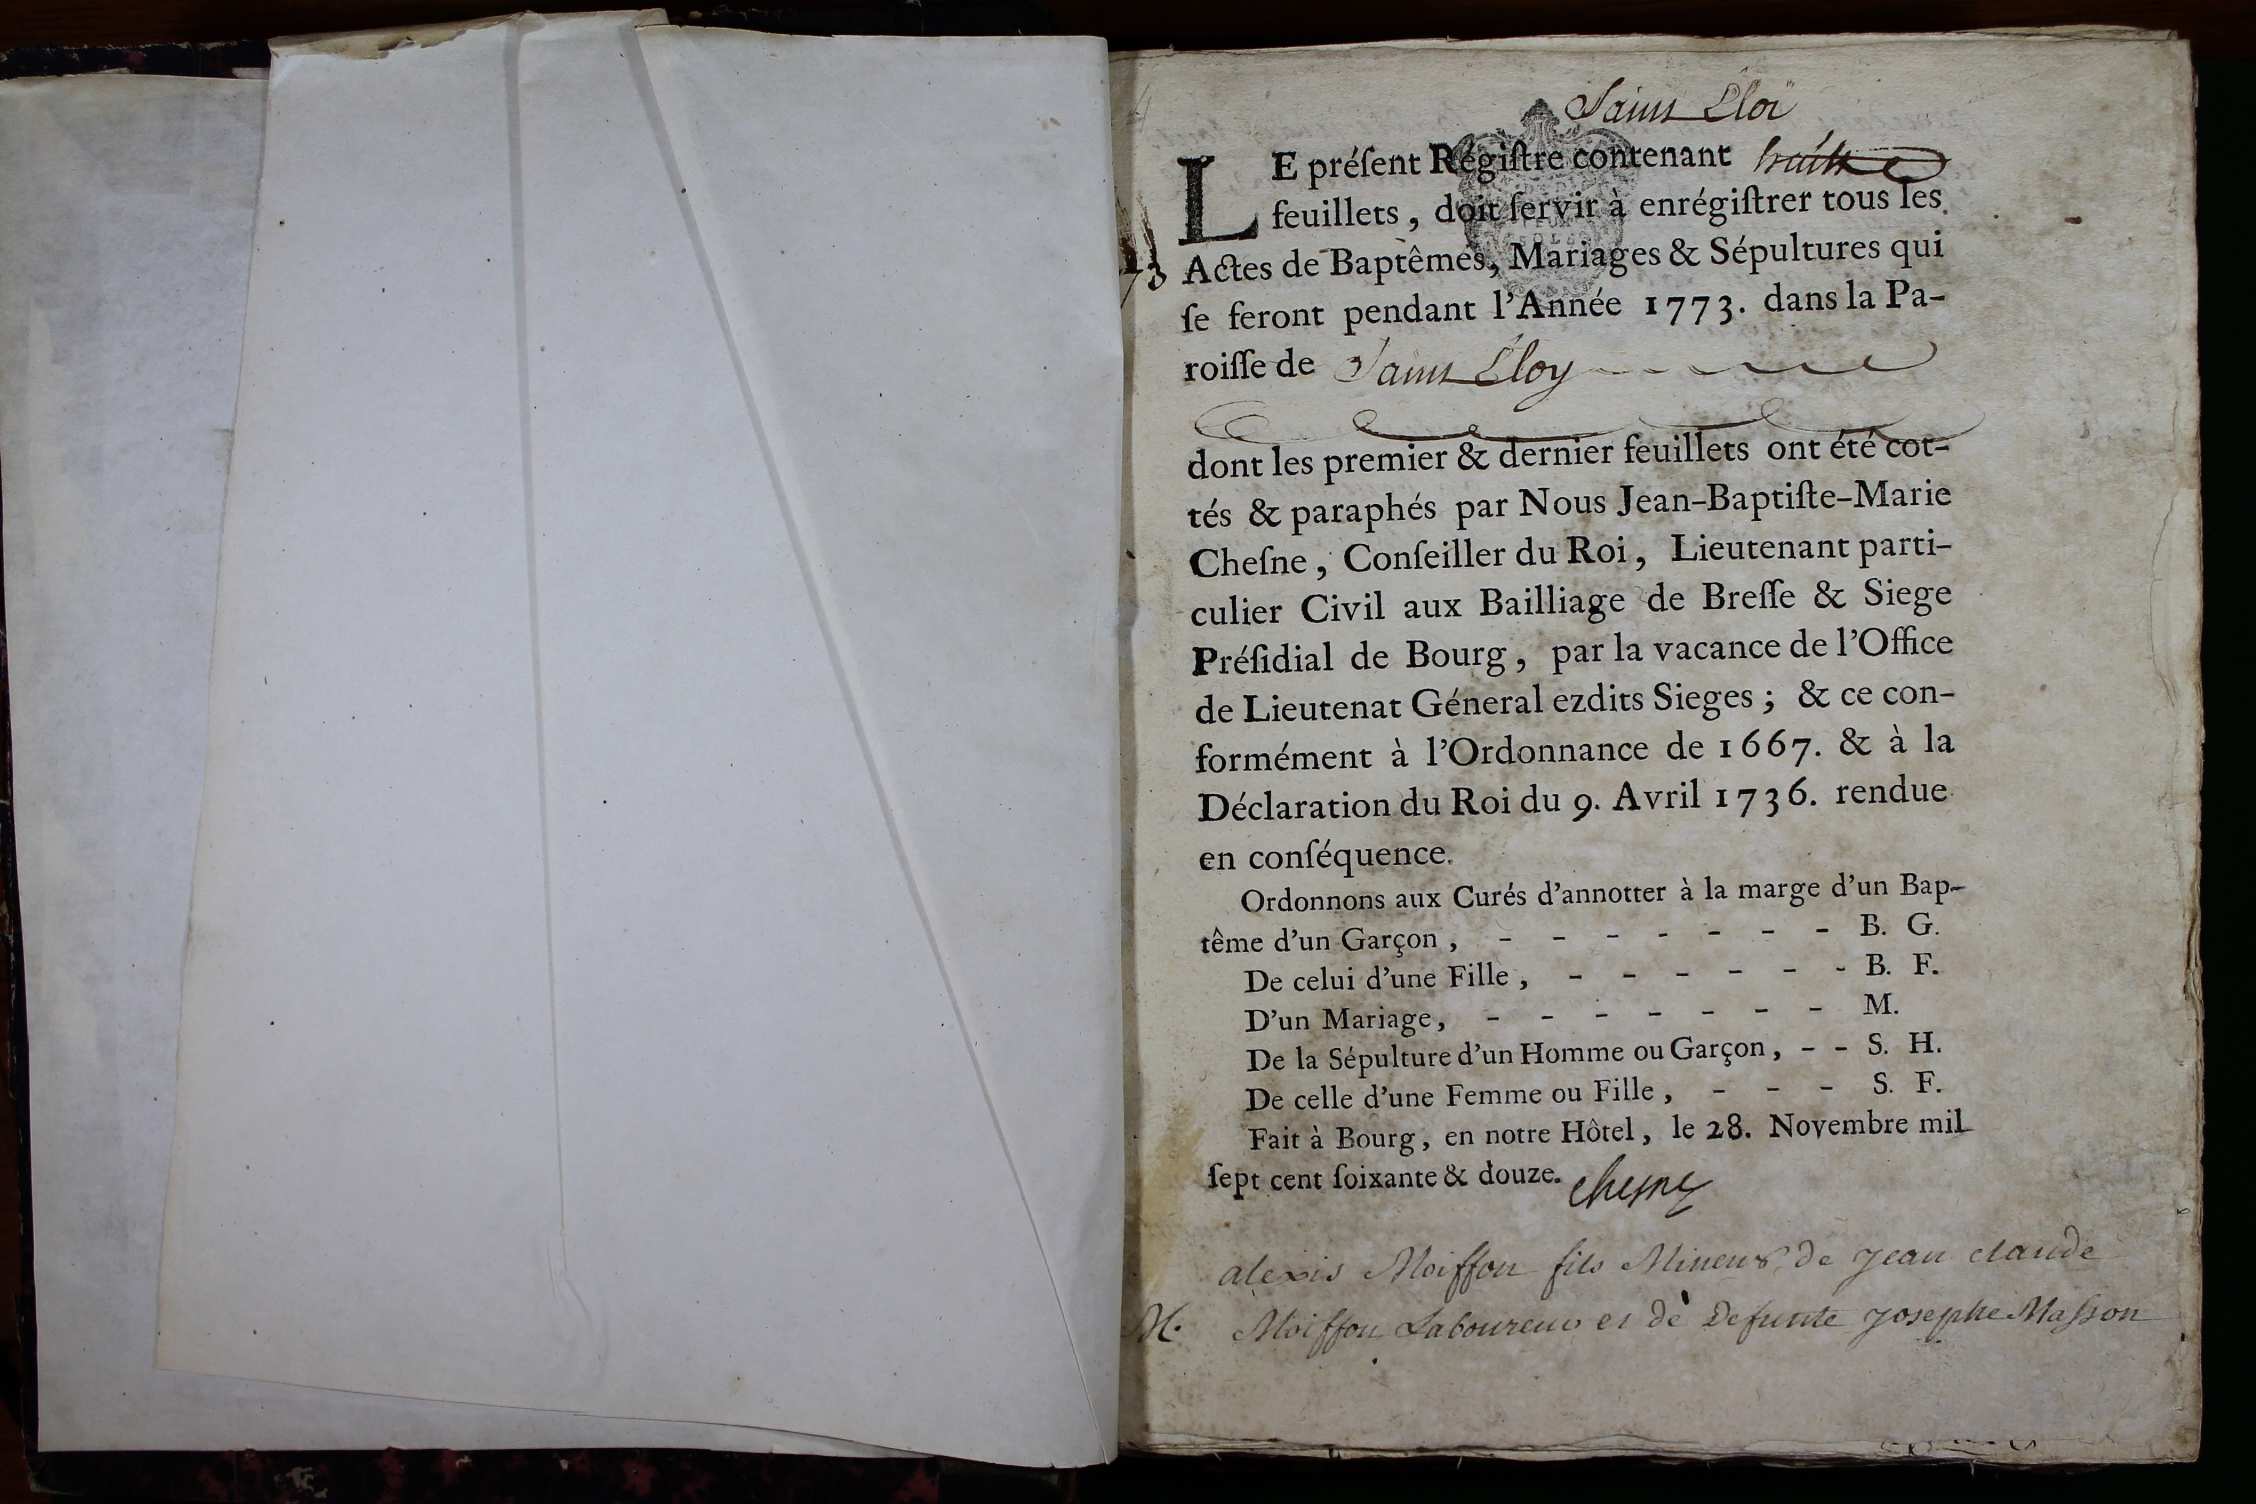 Saint Eloi
LE préſent Régiſtre contenant huit
feuillets, doit ſervir à enrégiſtrer tous les
73
Actes de Baptêmes, Mariages & Sépultures qui
ſe feront pendant l'Année 1773. dans la Pa-
roiſſe de Saint Eloy
dont les premier & dernier feuillets ont été cot-
tés & paraphés par Nous Jean-Baptiſte-Marie
Cheſne, Conſeiller du Roi, Lieutenant parti-
culier Civil aux Bailliage de Breſſe & Siege
Préſidial de Bourg, par la vacance de l'Office
de Lieutenat Géneral ezdits Sieges; & ce con-
formément à l'Ordonnance de 1667. & à la
Déclaration du Roi du 9. Avril 1736. rendue
en conſéquence.
Ordonnons aux Curés d'annotter à la marge d'un Bap-
tême d'un Garçon, - - - - - - - B. G.
De celui d'une Fille, - - - - - - B. F.
D'un Mariage, - - - - - - - M.
De la Sépulture d'un Homme ou Garçon, - - S. H.
De celle d'une Femme ou Fille, - - - S. F.
Fait à Bourg, en notre Hôtel, le 28. Novembre mil
ſept cent ſoixante & douze. chesne
alexis Moiffon fils Mineur de Jean claude
M. Moiffon Laboureur et de Defunte Josephe Masson